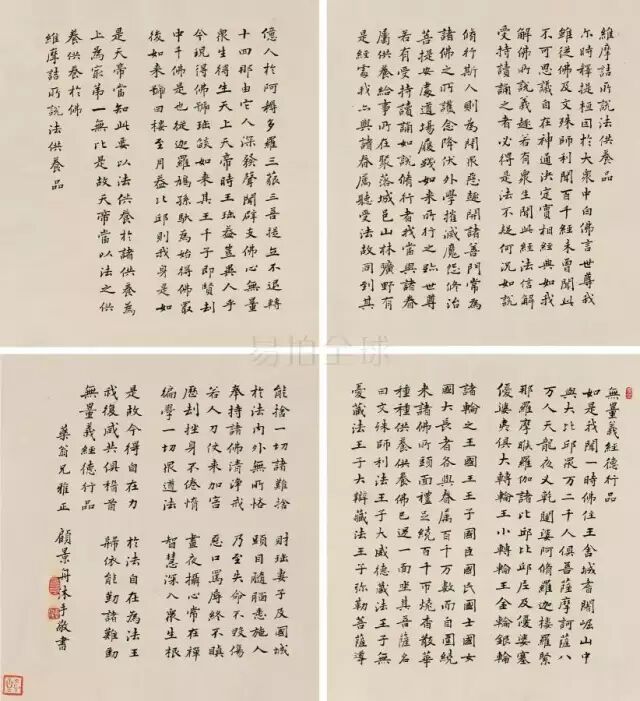 維摩詰所說法供養品
尒時釋提桓因於大衆中白佛言世尊我
雖從佛及文殊師利聞百千經未曾聞此
不可思議自在神通決定實相經典如我
解佛所說義趣若有衆生聞此經法信解
受持讀誦之者必得是法不疑何況如說
脩行斯人則為閉衆惡趣開諸善門常為
諸佛之所護念降伏外學摧滅魔怨脩治
菩提安處道場履踐如來所行之跡世尊
若有受持讀誦如說脩行者我當與諸眷
屬供養給事所在聚落城邑山林曠野有
是經處我亦與諸眷屬聽受法故同到其
億人於阿耨多羅三藐三菩提立不退轉
十四那由它人深發聲聞辟支佛心無量
衆生得生天上天帝時王珤葢豈異人乎
今現得佛號珤燄如來其王千子即賢刦
中千佛是也從迦羅鳩孫馱為始得佛最
後如來號曰樓至月葢比邱則我身是如
是天帝當知此要以法供養於諸供養為
上為冣第一無比是故天帝當以法之供
養供養於佛
維摩詰所說法供養品
無量義經德行品
如是我聞一時佛住王舍城耆闍崛山中
與大比邱衆萬二千人俱菩薩摩訶薩八
萬人天龍夜叉乾闥婆阿脩羅迦樓羅緊
那羅摩睺羅伽諸比邱比邱尼及優婆塞
優婆夷俱大轉輪王小轉輪王金輪銀輪
諸輪之王國王王子國臣國民國士國女
國大長者各與眷屬百千萬數而自圍繞
來詣佛所頭面禮足繞百千帀燒香散華
種種供養供養佛已退一面坐其菩薩名
曰文殊師利法王子大威德藏法王子無
憂藏法王子大辯藏法王子彌勒菩薩導
能捨一切諸難捨 財珤妻子及國城
於法內外無所恡 頭目髓腦悉施人
奉持諸佛清淨戒 乃至失命不毀傷
若人刀仗來加害 惡口罵辱終不瞋
歷刦挫身不倦惰 晝夜攝心常在禪
徧學一切衆道法 智慧深入衆生根
是故今得自在力 於法自在為法王
我復咸共俱稽首 歸依能勤諸難勤
無量義經德行品
藥翁兄雅正 顧景舟沐手敬書
易拍全球